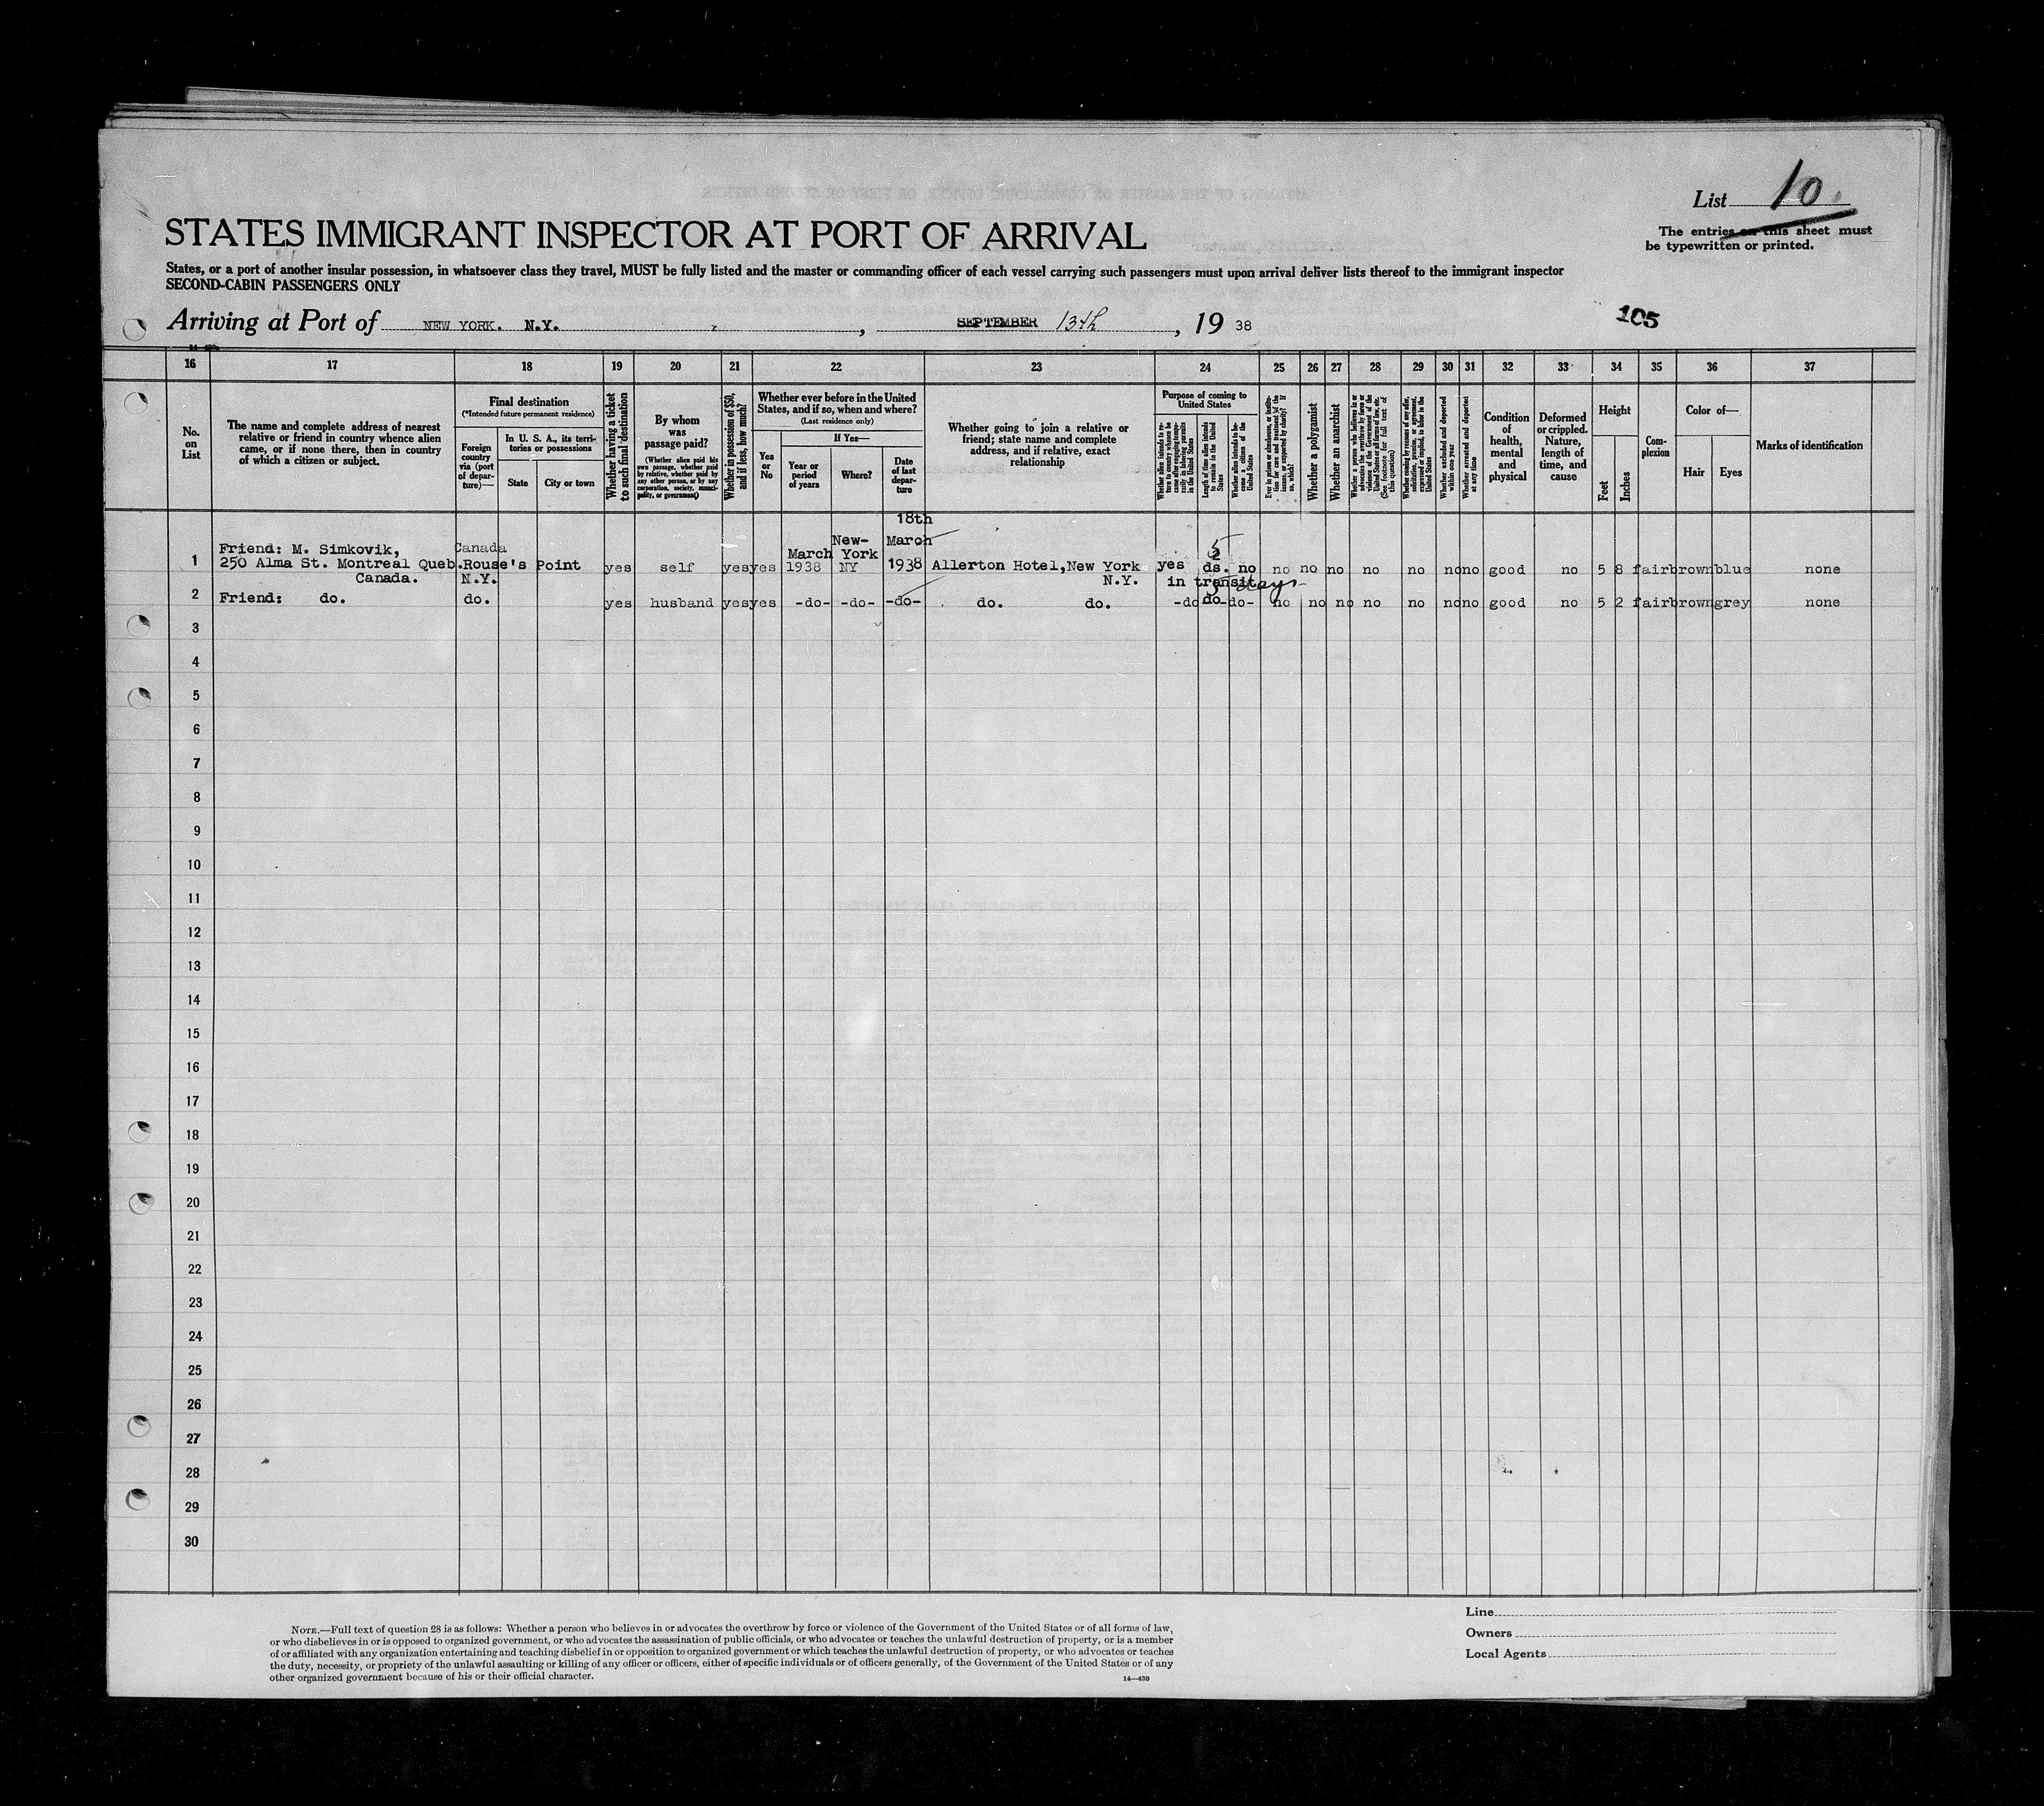 List 10.
The entries on this sheet must
be typewritten or printed.
STATES IMMIGRANT INSPECTOR AT PORT OF ARRIVAL
States, or a port of another insular possession, in whatsoever class they travel, MUST be fully listed and the master or commanding officer of each vessel carrying such passengers must upon arrival deliver lists thereof to the immigrant inspector
SECOND-CABIN PASSENGERS ONLY
Arriving at Port of NEW YORK. N.Y. , SEPTEMBER 13th , 19 38
105
16 17 18 19 20 21 22 23 24 25 26 27 28 29 30 31 32 33 34 35 36 37
No. on List
The name and complete address of nearest
relative or friend in country whence alien
came, or if none there, then in country
of which a citizen or subject.
Final destination
(*Intended future permanent residence)
Foreign
country
via (port
of depar-
ture)—
In U. S. A., its terri-
tories or possessions
State
City or town
Whether having a ticket
to such final destination
By whom
was
passage paid?
(Whether alien paid his
own passage, whether paid
by relative, whether paid by
any other person, or by any
corporation, society, munici-
pality, or government)
Whether in possession of $50,
and if less, how much?
Whether ever before in the United
States, and if so, when and where?
(Last residence only)
Yes
or
No
If Yes—
Year or
period
of years
Where?
Date
of last
depar-
ture
Whether going to join a relative or
friend; state name and complete
address, and if relative, exact
relationship
Purpose of coming to
United States
Whether alien intends to re-
turn to country whence he
came after engaging tempo-
rarily in laboring pursuits
in the United States
Length of time alien intends
to remain in the United
States
Whether alien intends to be-
come a citizen of the
United States
Ever in prison or almshouse, or institu-
tion for care and treatment of the
insane, or supported by charity? If
so, which?
Whether a polygamist
Whether an anarchist
Whether a person who believes in or
advocates the overthrow by force or
violence of the Government of the
United States or all forms of law, etc.
(See footnote for full text of
this question)
Whether coming by reasons of any offer,
solicitation, promise, or agreement,
expressed or implied, to labor in the
United States
Whether excluded and deported
within one year
Whether arrested and deported
at any time
Condition
of
health,
mental
and
physical
Deformed
or crippled.
Nature,
length of
time, and
cause
Height
Feet
Inches
Com-
plexion
Color of—
Hair
Eyes
Marks of identification
18th
Friend: M. Simkovik, Canada New- March
1 250 Alma St. Montreal Queb. Rouse's Point yes self yes yes March 1938 York NY 1938 Allerton Hotel, New York yes 5 ds. no no no no no no no no good no 5 8 fair brown blue none
Canada. N.Y. N.Y. in transit
5 days
2 Friend: do. do. yes husband yes yes -do- -do- -do- do. do. -do do -do- no no no no no no no good no 5 2 fair brown grey none
3
4
5
6
7
8
9
10
11
12
13
14
15
16
17
18
19
20
21
22
23
24
25
26
27
28
29
30
NOTE.—Full text of question 28 is as follows: Whether a person who believes in or advocates the overthrow by force or violence of the Government of the United States or of all forms of law,
or who disbelieves in or is opposed to organized government, or who advocates the assassination of public officials, or who advocates or teaches the unlawful destruction of property, or is a member
of or affiliated with any organization entertaining and teaching disbelief in or opposition to organized government or which teaches the unlawful destruction of property, or who advocates or teaches
the duty, necessity, or propriety of the unlawful assaulting or killing of any officer or officers, either of specific individuals or of officers generally, of the Government of the United States or of any
other organized government because of his or their official character.
14—430
Line
Owners
Local Agents